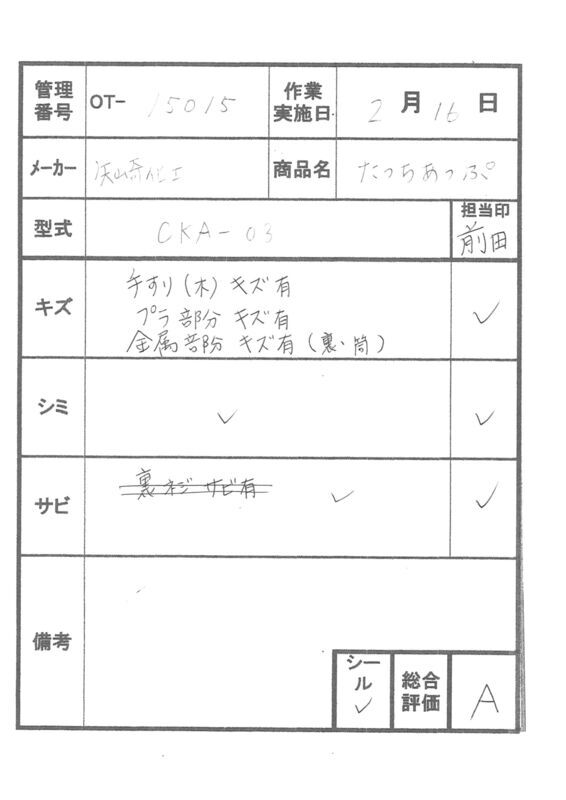 管理番号 OT- 15015 作業実施日 2月16日
メーカー 矢崎化工 商品名 たっちあっぷ
型式 CKA-03 担当印 前田
キズ 手すり(木)キズ有 ✓
プラ部分 キズ有
金属部分 キズ有(裏・筒)
シミ ✓ ✓
サビ 裏ネジ サビ有 ✓ ✓
備考
シール ✓ 総合評価 A